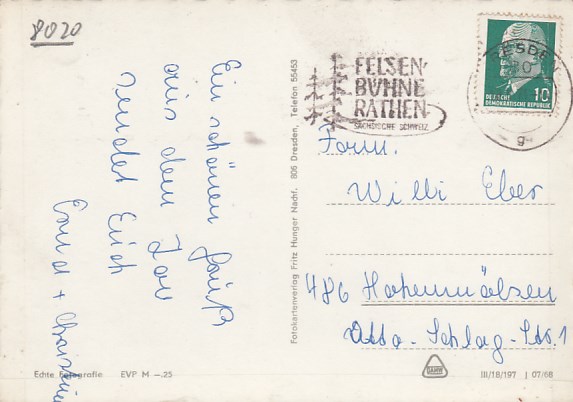 8020
Ein schönen Gruß
aus dem Zoo
sendet Euch
+
FELSEN-
BÜHNE
RATHEN
SÄCHSISCHE SCHWEIZ
DRESDEN
g
10
DEUTSCHE
DEMOKRATISCHE REPUBLIK
Fam.
Willi Eber
486 Hohenmölsen
Otto-Schlag-Str. 1
Fotokartenverlag Fritz Hunger Nachf. 806 Dresden, Telefon 55453
Echte Fotografie EVP M –.25
III/18/197 J 07/68